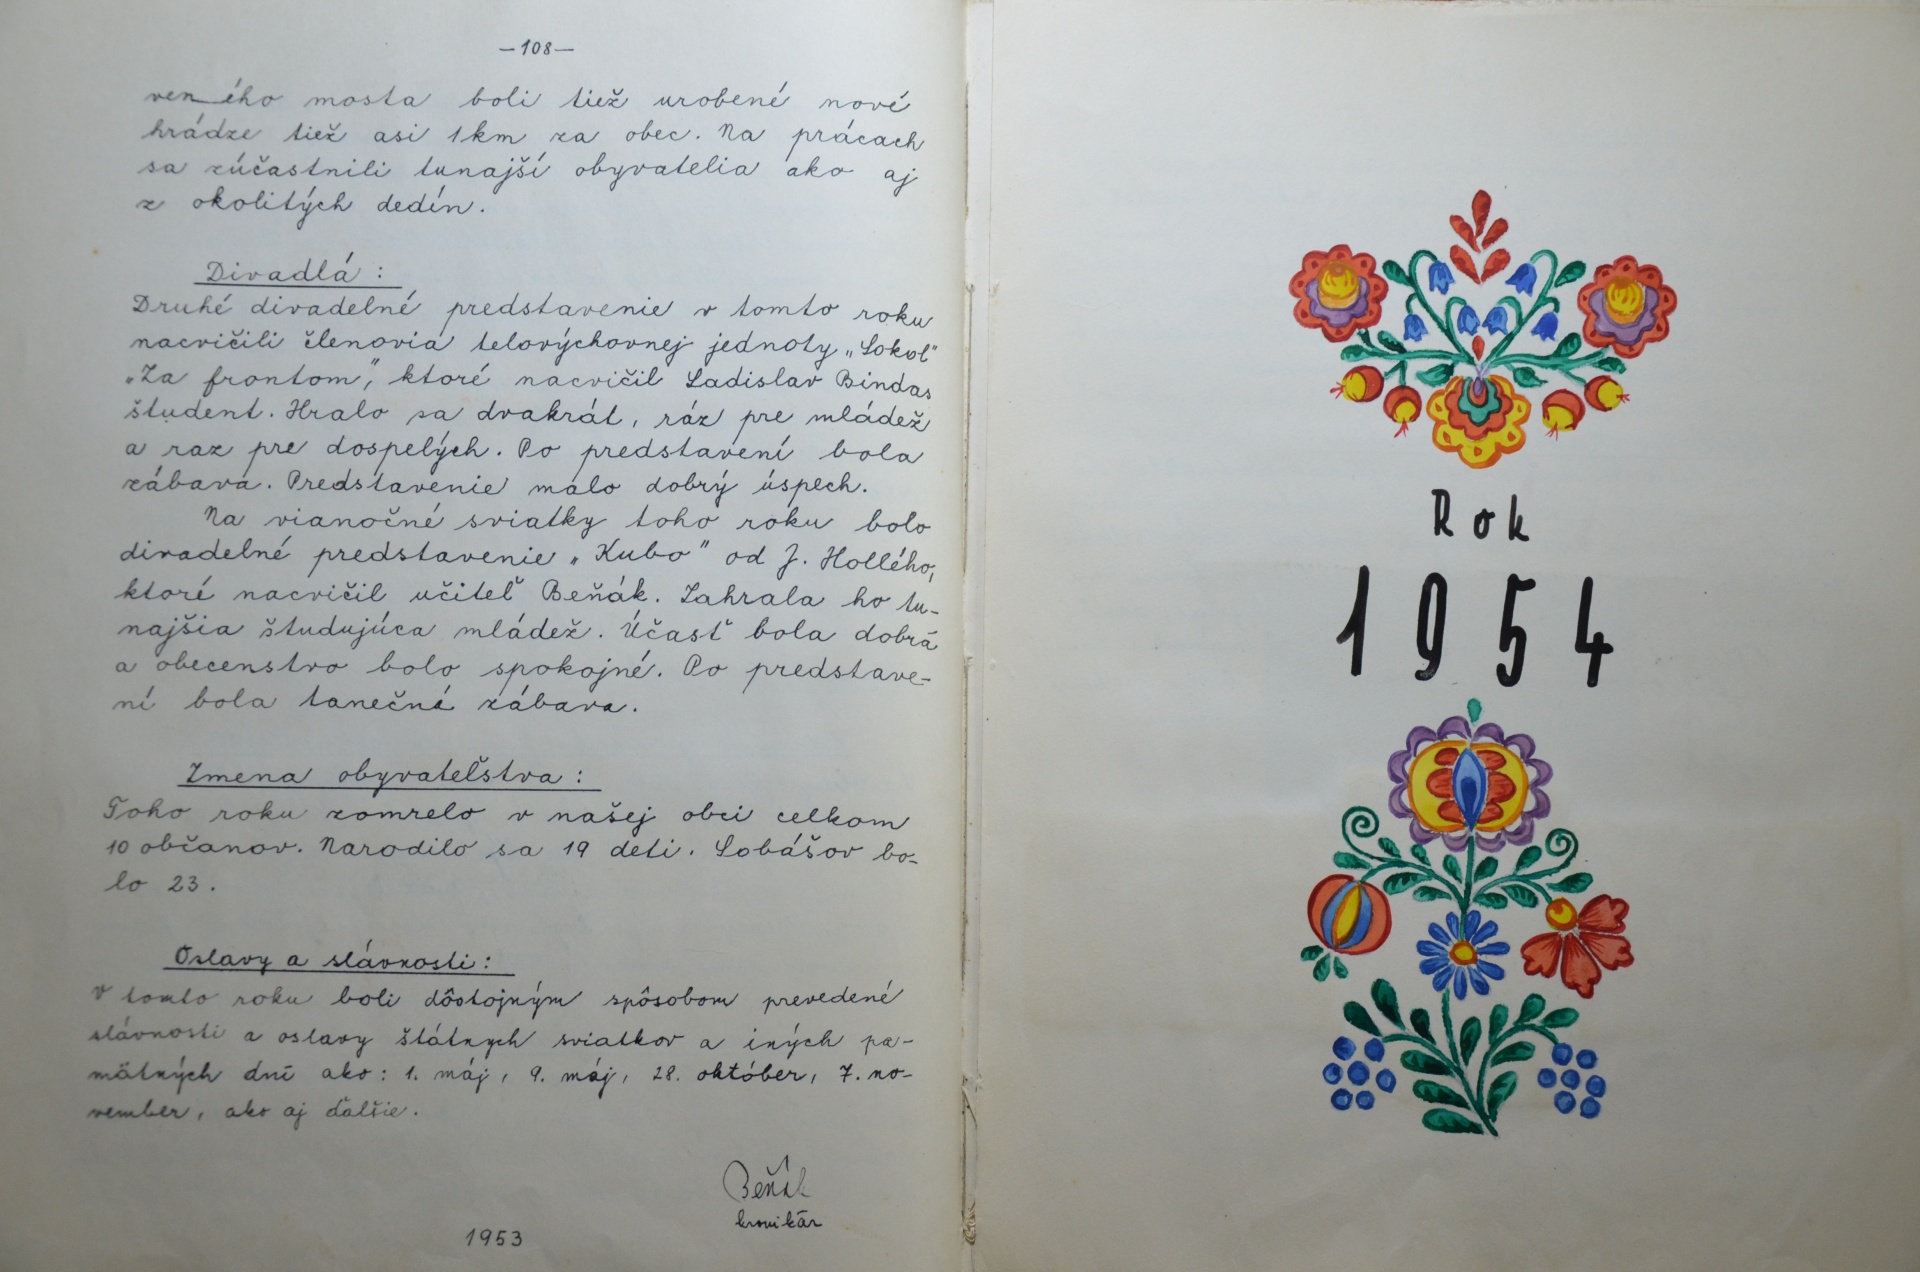 —108—
ven ého mosta boli tiež urobené nové
hrádze tiež asi 1 km za obec. Na prácach
sa zúčastnili tunajší obyvatelia ako aj
z okolitých dedín.
Divadlá:
Druhé divadelné predstavenie v tomto roku
nacvičili členovia telovýchovnej jednoty „Sokol"
„Za frontom", ktoré nacvičil Ladislav Bindas
študent. Hralo sa dvakrát, ráz pre mládež
a raz pre dospelých. Po predstavení bola
zábava. Predstavenie malo dobrý úspech.
Na vianočné sviatky toho roku bolo
divadelné predstavenie „Kubo" od J. Hollého,
ktoré nacvičil učiteľ Beňák. Zahrala ho tu-
najšia študujúca mládež. Účasť bola dobrá
a obecenstvo bolo spokojné. Po predstave-
ní bola tanečná zábava.
Zmena obyvateľstva:
Toho roku zomrelo v našej obci celkom
10 občanov. Narodilo sa 19 deti. Sobášov bo-
lo 23.
Oslavy a slávnosti:
V tomto roku boli dôstojným spôsobom prevedené
slávnosti a oslavy štátnych sviatkov a iných pa-
mätných dní ako: 1. máj, 9. máj, 28. október, 7. no-
vember, ako aj ďalšie.
Beňák
kronikár
1953
Rok
1954